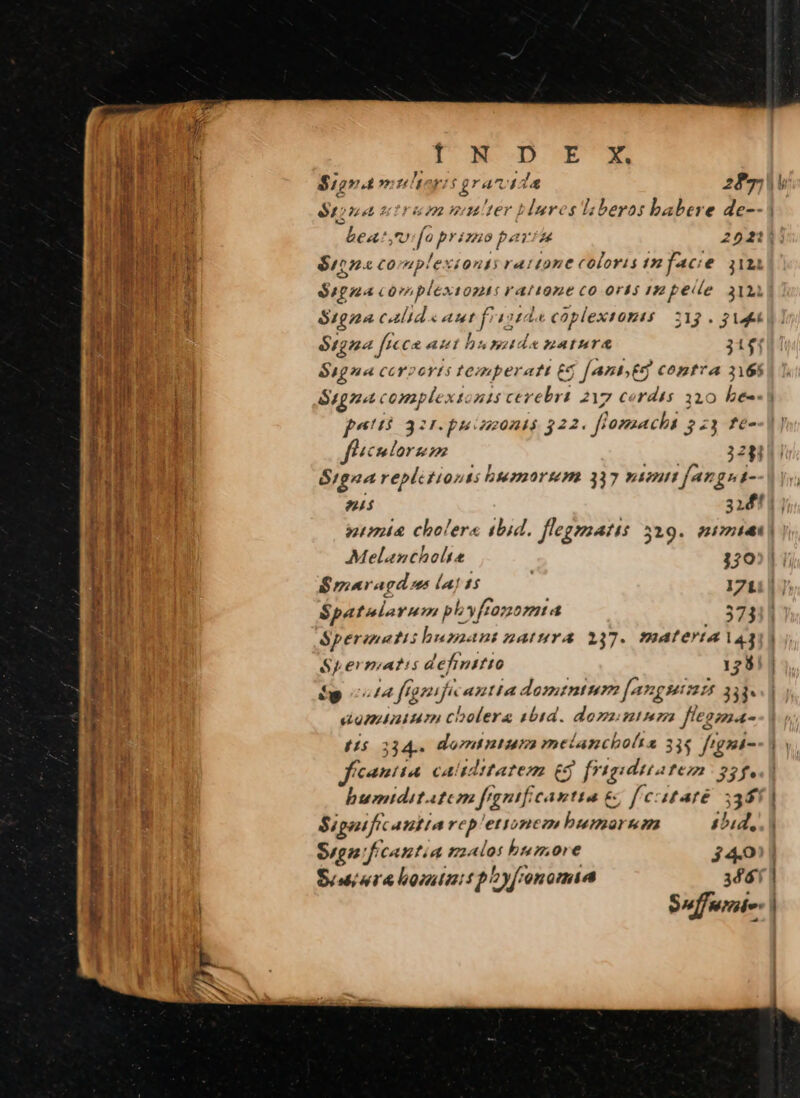 INDEX.
Signa mulieris gravida 287
Signa utrum mulier plures liberos habere de-
beat, vel so primo partu 292
Signa complexionis ratione coloris in facie 312
Signa complexionis ratione co oris in pelle 312
Signa calida aut frigida cõplexionis 313. 314
Signa sicca aut humida natura 315
Signa corporis temperati & sani, & contra 316
Signa complexionis cerebri 217 cordis 320 he-
patis 321. pulmonis 322. stomachi 323 te-
sticulorum 328
Signa repletionis humorum 337 nimii sangui-
nis 328
nimiæ choleræ ibid. flegmatis 329. nimiæ
Melancholiæ 330
Smaragdus lapis 171
Spatularum physionomia 373
Spermatis humani natura 137. materia 143
Spermatis definitio 138
significantia dominium sanguinis 333.
dominium choleræ ibid. dominium flegma-
tis 334. dominium melancholiæ 335 signi-
ficantia caliditatem & frigiditatem 335.
humiditatem significantia & siccitatē 336
Significantia repletionem humorum ibid.
Significantia malos humore 340
Statura hominis physionomia 386
Suffumi-